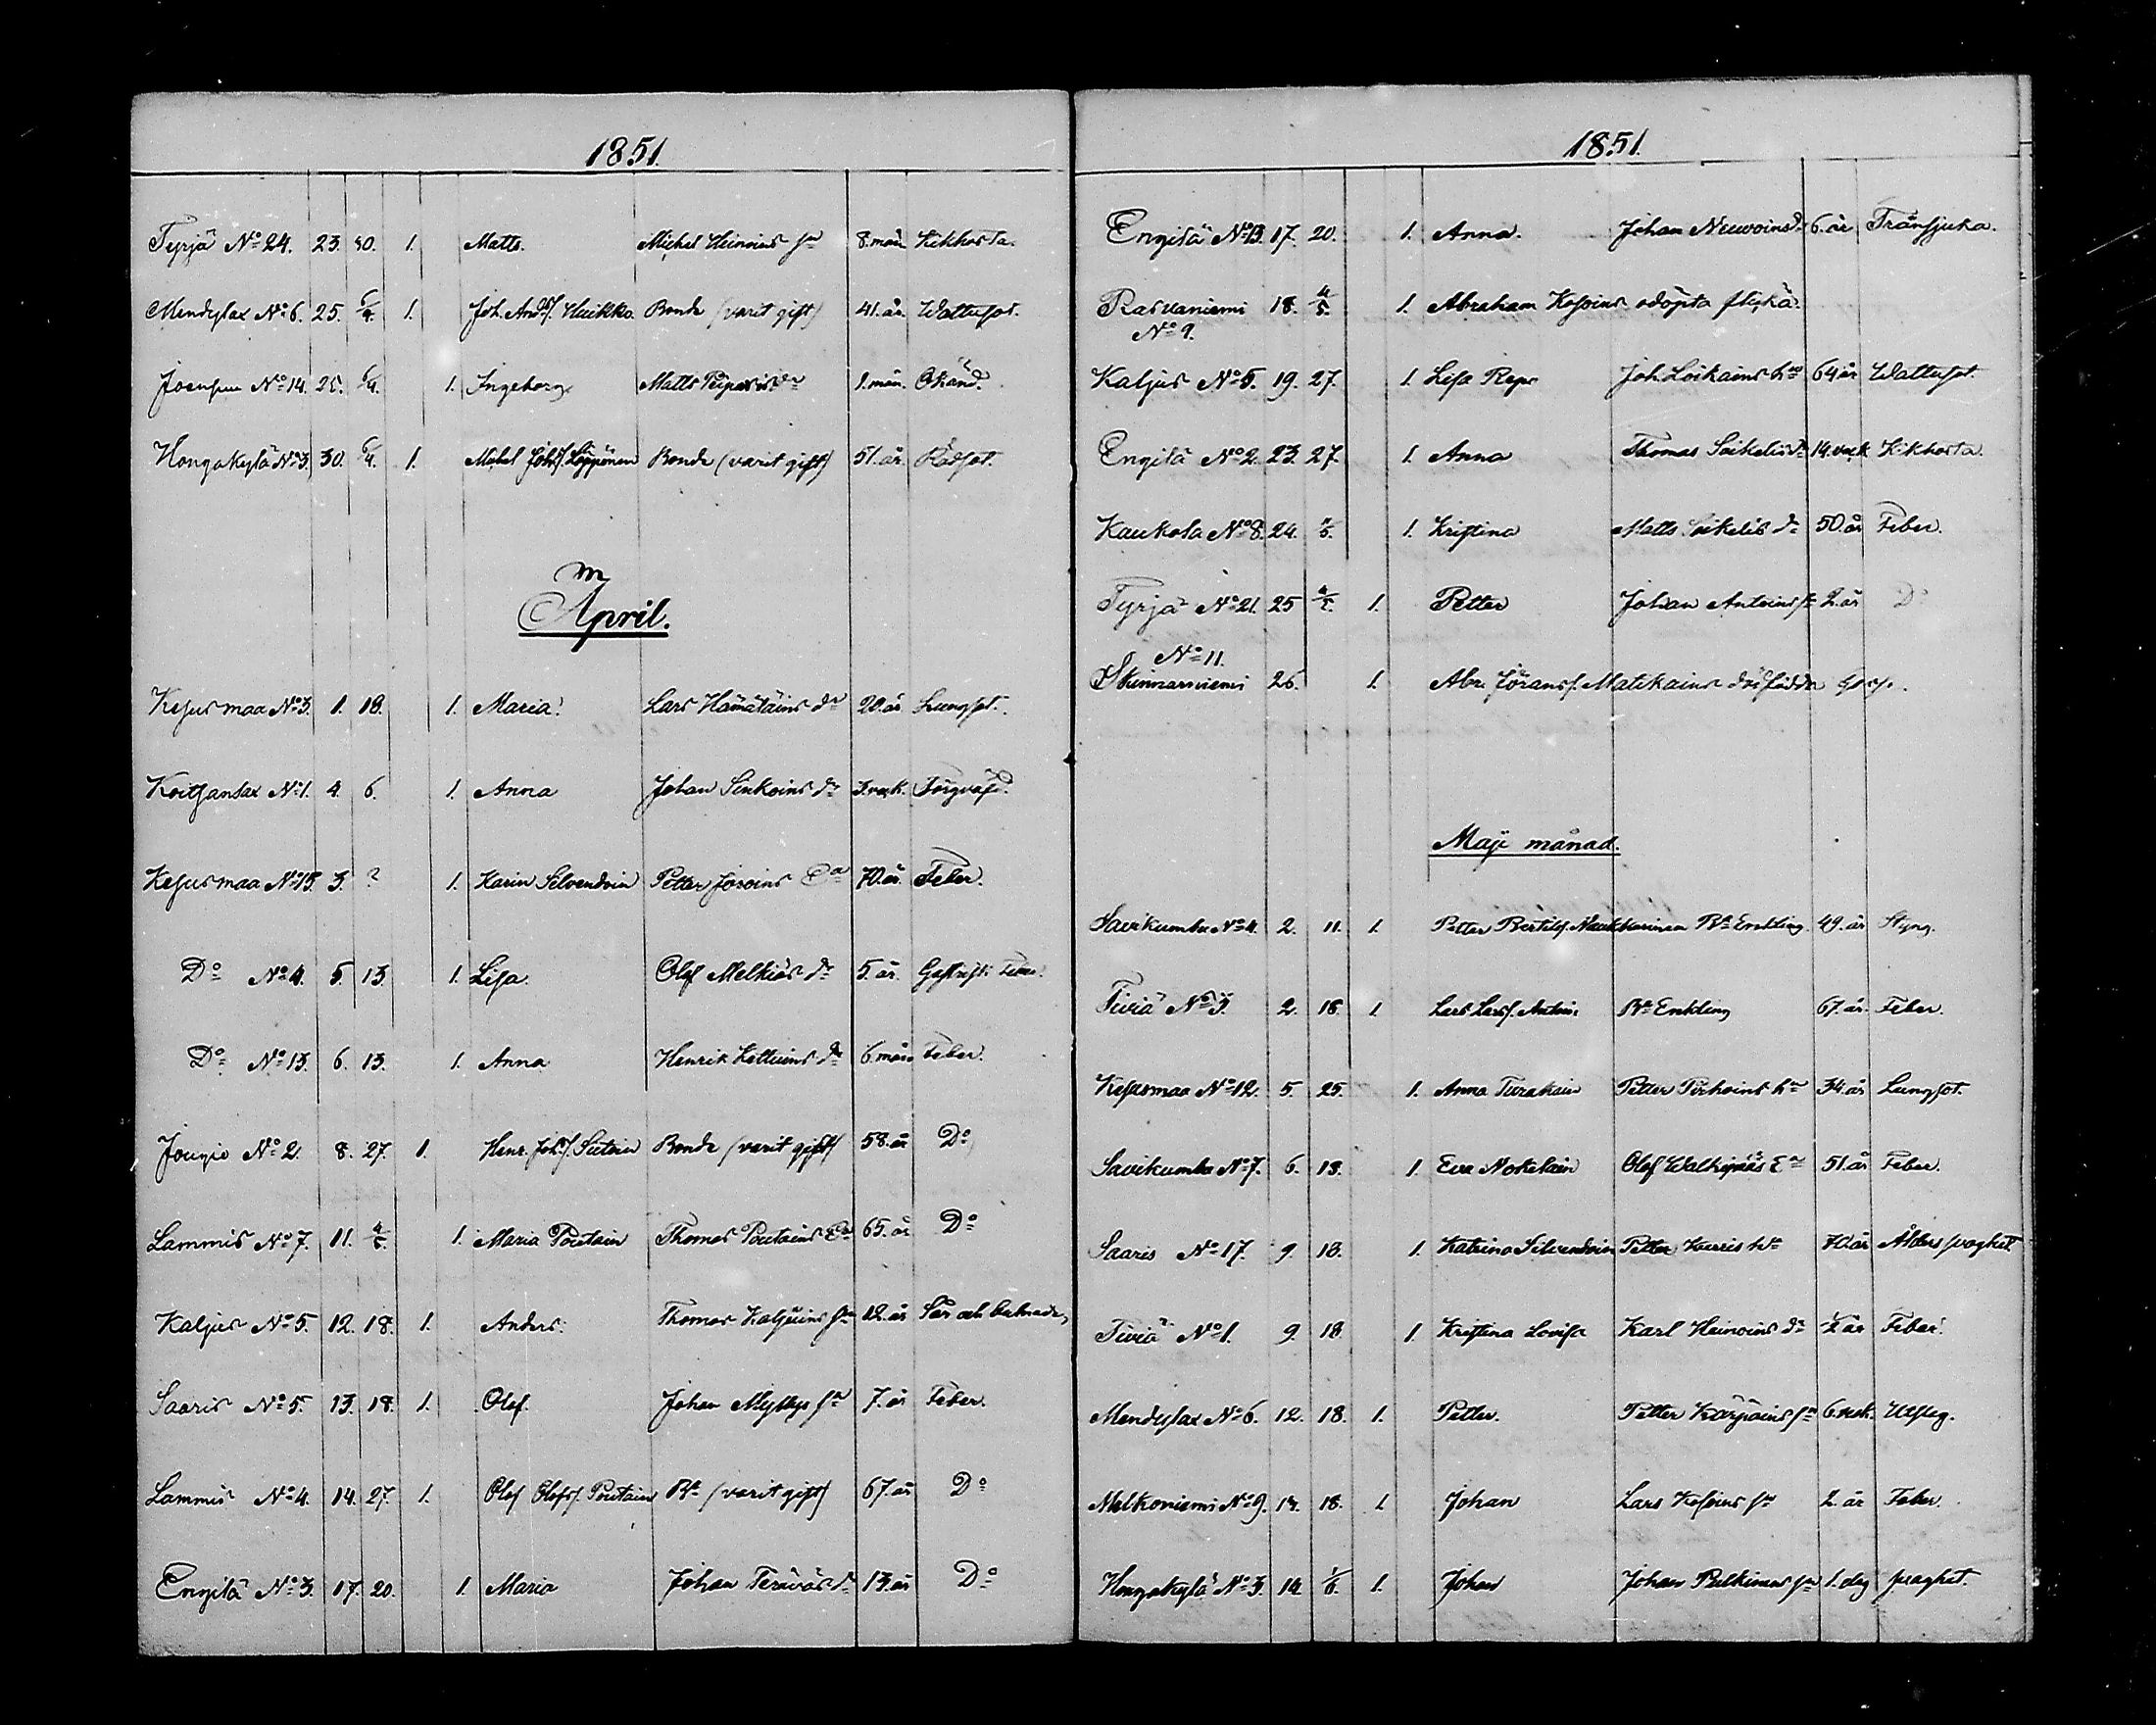 1851.
Tyrjä No 24. 23. 30. 1. Matts. Michel Heinoins sn 8. mån. Kikhosta.
Mendyslax No 6. 25. 6/4. 1. Joh. Andsf. Huikko Bonde (varit gift) 41. år. Wattusot.
Joensuu No 14. 25. 6/4. 1. Ingeborg Matts dr 1. mån. Okänd.
Hongakylä No 3. 30. 6/4. 1. Mikel Johsf. Löppönen Bonde (varit gift) 51. år. Rödsot.
April.
Kesusmaa No 3. 1. 18. 1. Maria. Lars Hämäläins dr 20. år Lungsot.
Koitsanlax No 1. 4. 6. 1. Anna Johan Sinkoins dr 3. vek. Torgväfd.
Kesusmaa No 15. 3. ? 1. Karin Silvendoin Petter Josoins Ea 70. år. Feber.
Do No 4. 5. 13. 1. Lisa. Olof Melkiäs dr 5. år. Gastrisk Feber.
Do No 13. 6. 13. 1. Anna Henrik Kettuins dr 6. mån Feber.
Jougio No 2. 8. 27. 1. Henr. Johsf. Sutoin Bonde (varit gift) 58. år Do
Lammis No 7. 11. 4/5. 1. Maria Poutain Thomas Poutains Ea 65. år Do
Kaljus No 5. 12. 18. 1. Anders. Thomas Kaljuins sn 12. år Sår och bulnader
Saaris No 5. 13. 18. 1. Olof. Johan Myllys sn 7. år Feber.
Lammis No 4. 14. 27. 1. Olof Olofsf. Poutain Be (varit gift) 67. år Do
Engilä No 3. 17. 20. 1. Maria Johan Teräväs dr 13. år Do
1851.
Engilä No 13. 17. 20. 1. Anna. Johan Neuvoins dr 6. år Trånsjuka.
Rasvaniemi 18. 4/5. 1. Abraham Kosoins odöpta flicka.
No 9.
Kaljus No 5. 19. 27. 1. Lisa Repo Joh. Loikains hu 64 år Wattusot.
Engilä No 2. 23. 27. 1. Anna Thomas Soikelis dr 14. veck Kikhosta.
Kaukola No 8. 24. 1. Kristina Matts Soikelis dr 50. år Feber.
Tyrjä No 21. 25 4/5. 1. Petter Johan Antoins sn 2. år Do
No 11.
Skinnarniemi 26. 1. Abr. Göransf. Matikains dödfödda Gosse.
Maji månad.
Savikumbu No 4. 2. 11. 1. Petter Bertilsf. Naukkarinen Be Enkling. 49. år Styng.
Tiviä No 3. 2. 18. 1. Lars Larsf. Antoin Be Enkling 67. år. Feber.
Kesusmaa No 12. 5. 25. 1. Anna Turakain Petter Pirhoins hu 34. år Lungsot.
Savikumbu No 7. 6. 18. 1. Eva Nokelain Olof Walkiapääs Ea 51. år Feber.
Saaris No 17. 9. 18. 1. Katrina Silvendoin Petter Kurris hu 70. år Ålders svaghet.
Tiviä No 1. 9. 18 1. Kristina Lovisa Karl Heinoins dr 1/2 år Feber.
Mendyslax No 6. 12. 18. 1. Petter. Petter Kärpäins sn 6. vek. Utslag.
Melkoniemi No 9. 14. 18. 1. Johan Lars Kosoins sn 2. år Feber.
Hongakylä No 3. 14. 1/6. 1. Johan Johan Pulkinens sn 1. dag svaghet.